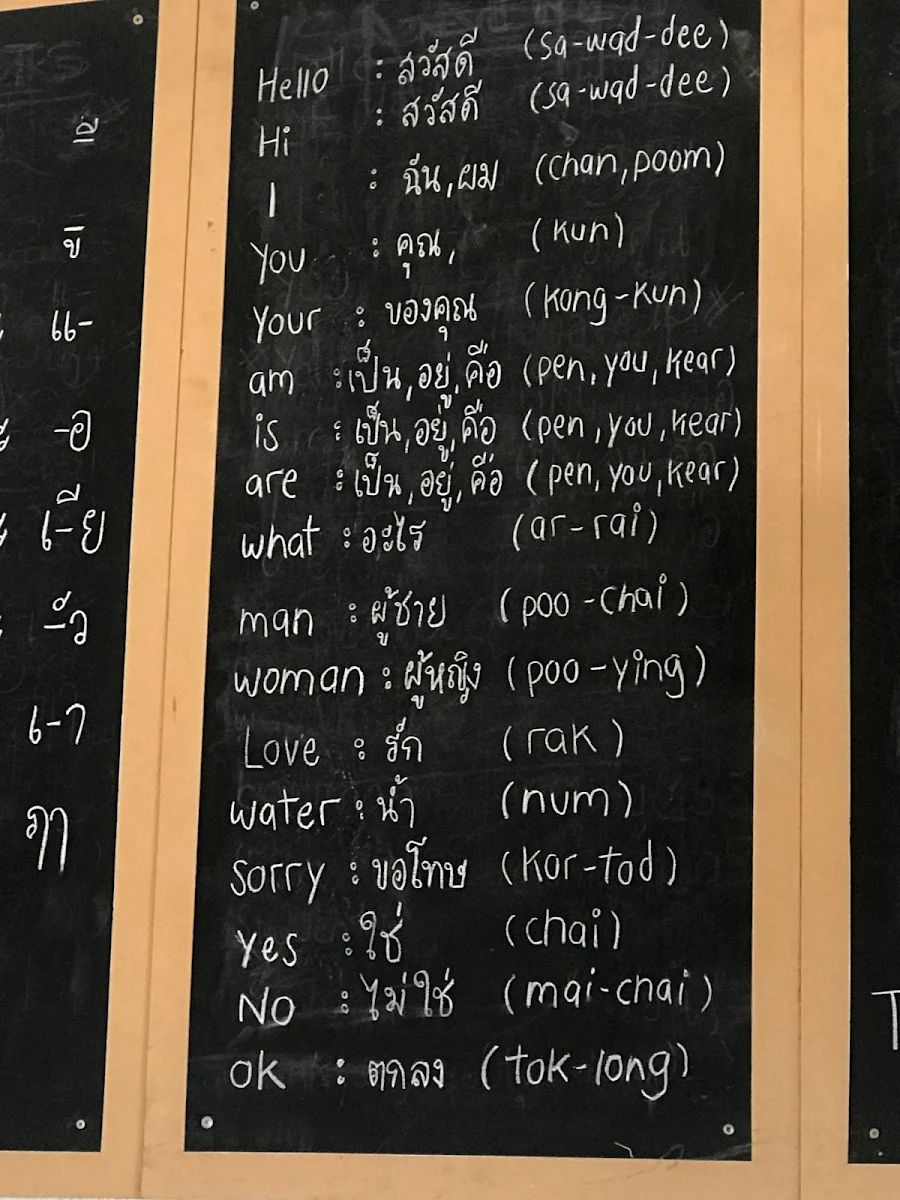 Hello : สวัสดี (sa-wad-dee)
Hi : สวัสดี (sa-wad-dee)
I : ฉัน,ผม (chan,poom)
you : คุณ, (kun)
your : ของคุณ (kong-kun)
am : เป็น,อยู่,คือ (pen,you,kear)
is : เป็น,อยู่,คือ (pen,you,kear)
are : เป็น,อยู่,คือ (pen,you,kear)
what : อะไร (ar-rai)
man : ผู้ชาย (poo-chai)
woman : ผู้หญิง (poo-ying)
Love : รัก (rak)
water : น้ำ (num)
sorry : ขอโทษ (kor-tod)
yes : ใช่ (chai)
No : ไม่ใช่ (mai-chai)
ok : ตกลง (tok-long)
แ-
-อ
เ-ีย
-ัว
เ-า
ฦๅ
T